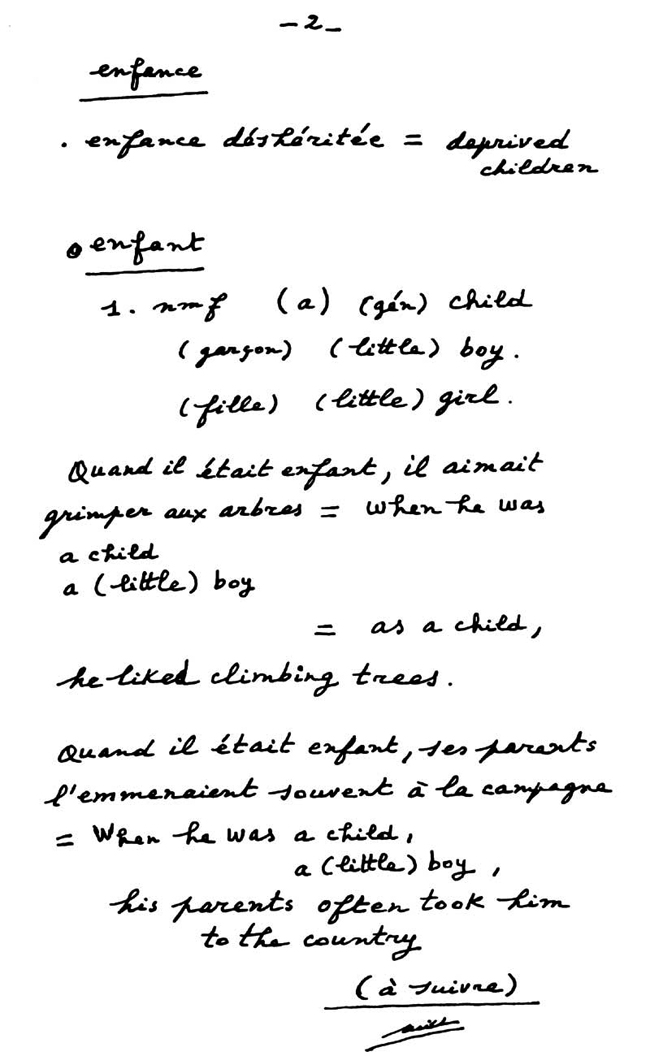 - 2 -
enfance
. enfance déshéritée = deprived
children
. enfant
1. nmf (a) (gén) child
(garçon) (little) boy.
(fille) (little) girl.
Quand il était enfant, il aimait
grimper aux arbres = when he was
a child
a (little) boy
= as a child,
he liked climbing trees.
Quand il était enfant, ses parents
l'emmenaient souvent à la campagne
= When he was a child,
a (little) boy,
his parents often took him
to the country
(à suivre)